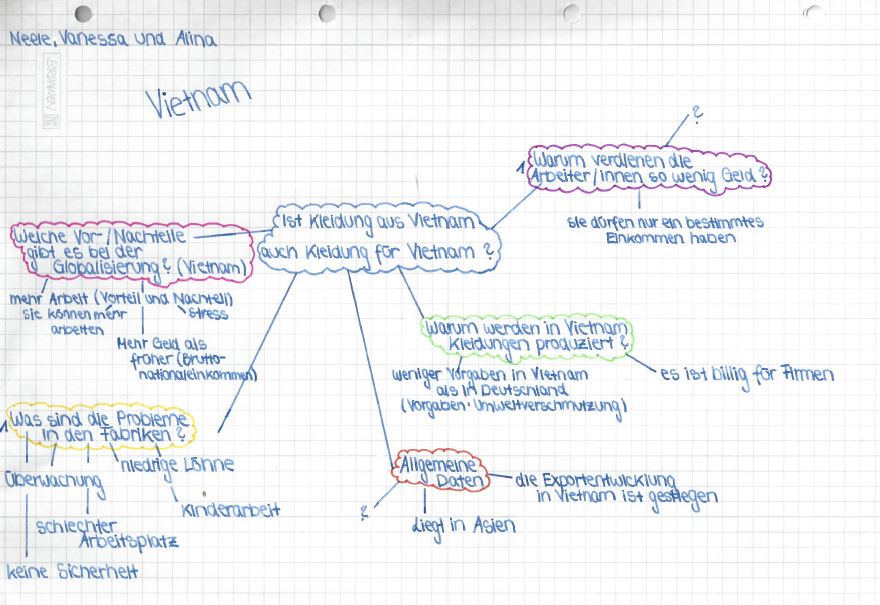 Neele, Vanessa und Alina
BRUNNEN
Vietnam
?
1 Warum verdienen die
Arbeiter/innen so wenig Geld?
sie dürfen nur ein bestimmtes
Einkommen haben
Ist Kleidung aus Vietnam
auch Kleidung für Vietnam?
Welche Vor-/Nachteile
gibt es bei der
Globalisierung? (Vietnam)
mehr Arbeit (Vorteil und Nachteil)
sie können mehr
arbeiten
stress
Mehr Geld als
früher (Brutto-
nationaleinkommen)
Warum werden in Vietnam
Kleidungen produziert?
weniger Vorgaben in Vietnam
als in Deutschland
(Vorgaben Umweltverschmutzung)
es ist billig für Firmen
1 Was sind die Probleme
in den Fabriken?
Überwachung
niedrige Löhne
Kinderarbeit
schlechter
Arbeitsplatz
keine Sicherheit
Allgemeine
Daten
die Exportentwicklung
in Vietnam ist gestiegen
?
Liegt in Asien